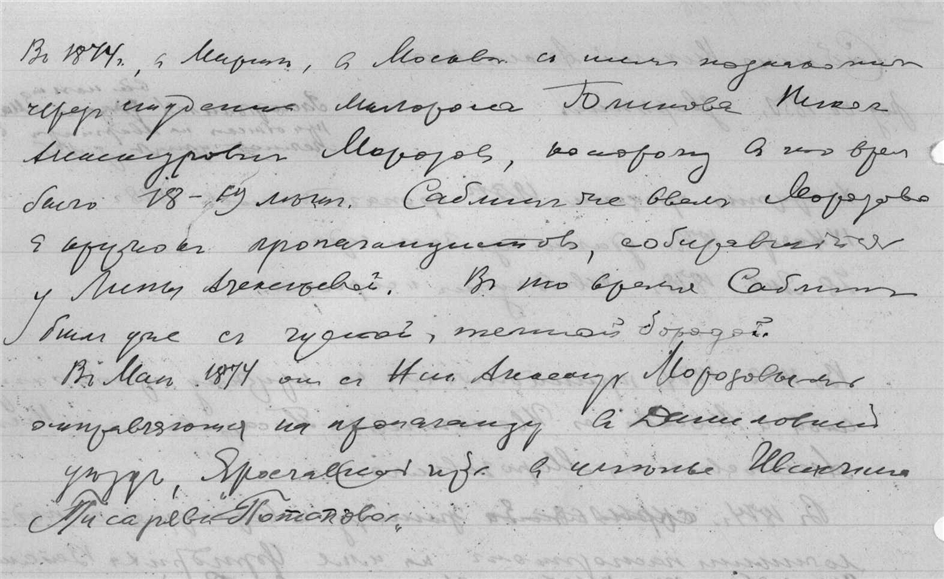 Въ 1874 г., в Марте, в Москве с ним познакомился
через студента Миловского Голикова Никол.
Александрович Морозов, которому в то врем
было 18-19 летъ. Саблин же ввел Морозова
в кружок пропагандистов, собиравшийся
у Липы Алексеевой. Въ то время Саблин
был уже с густой, темной бородой.
Въ Мае 1874 он с Ник. Александр. Морозовым
отправляются на пропаганду в Даниловский
уездъ, Ярославской губ. в именье Иванчина
Писарева "Потапово".